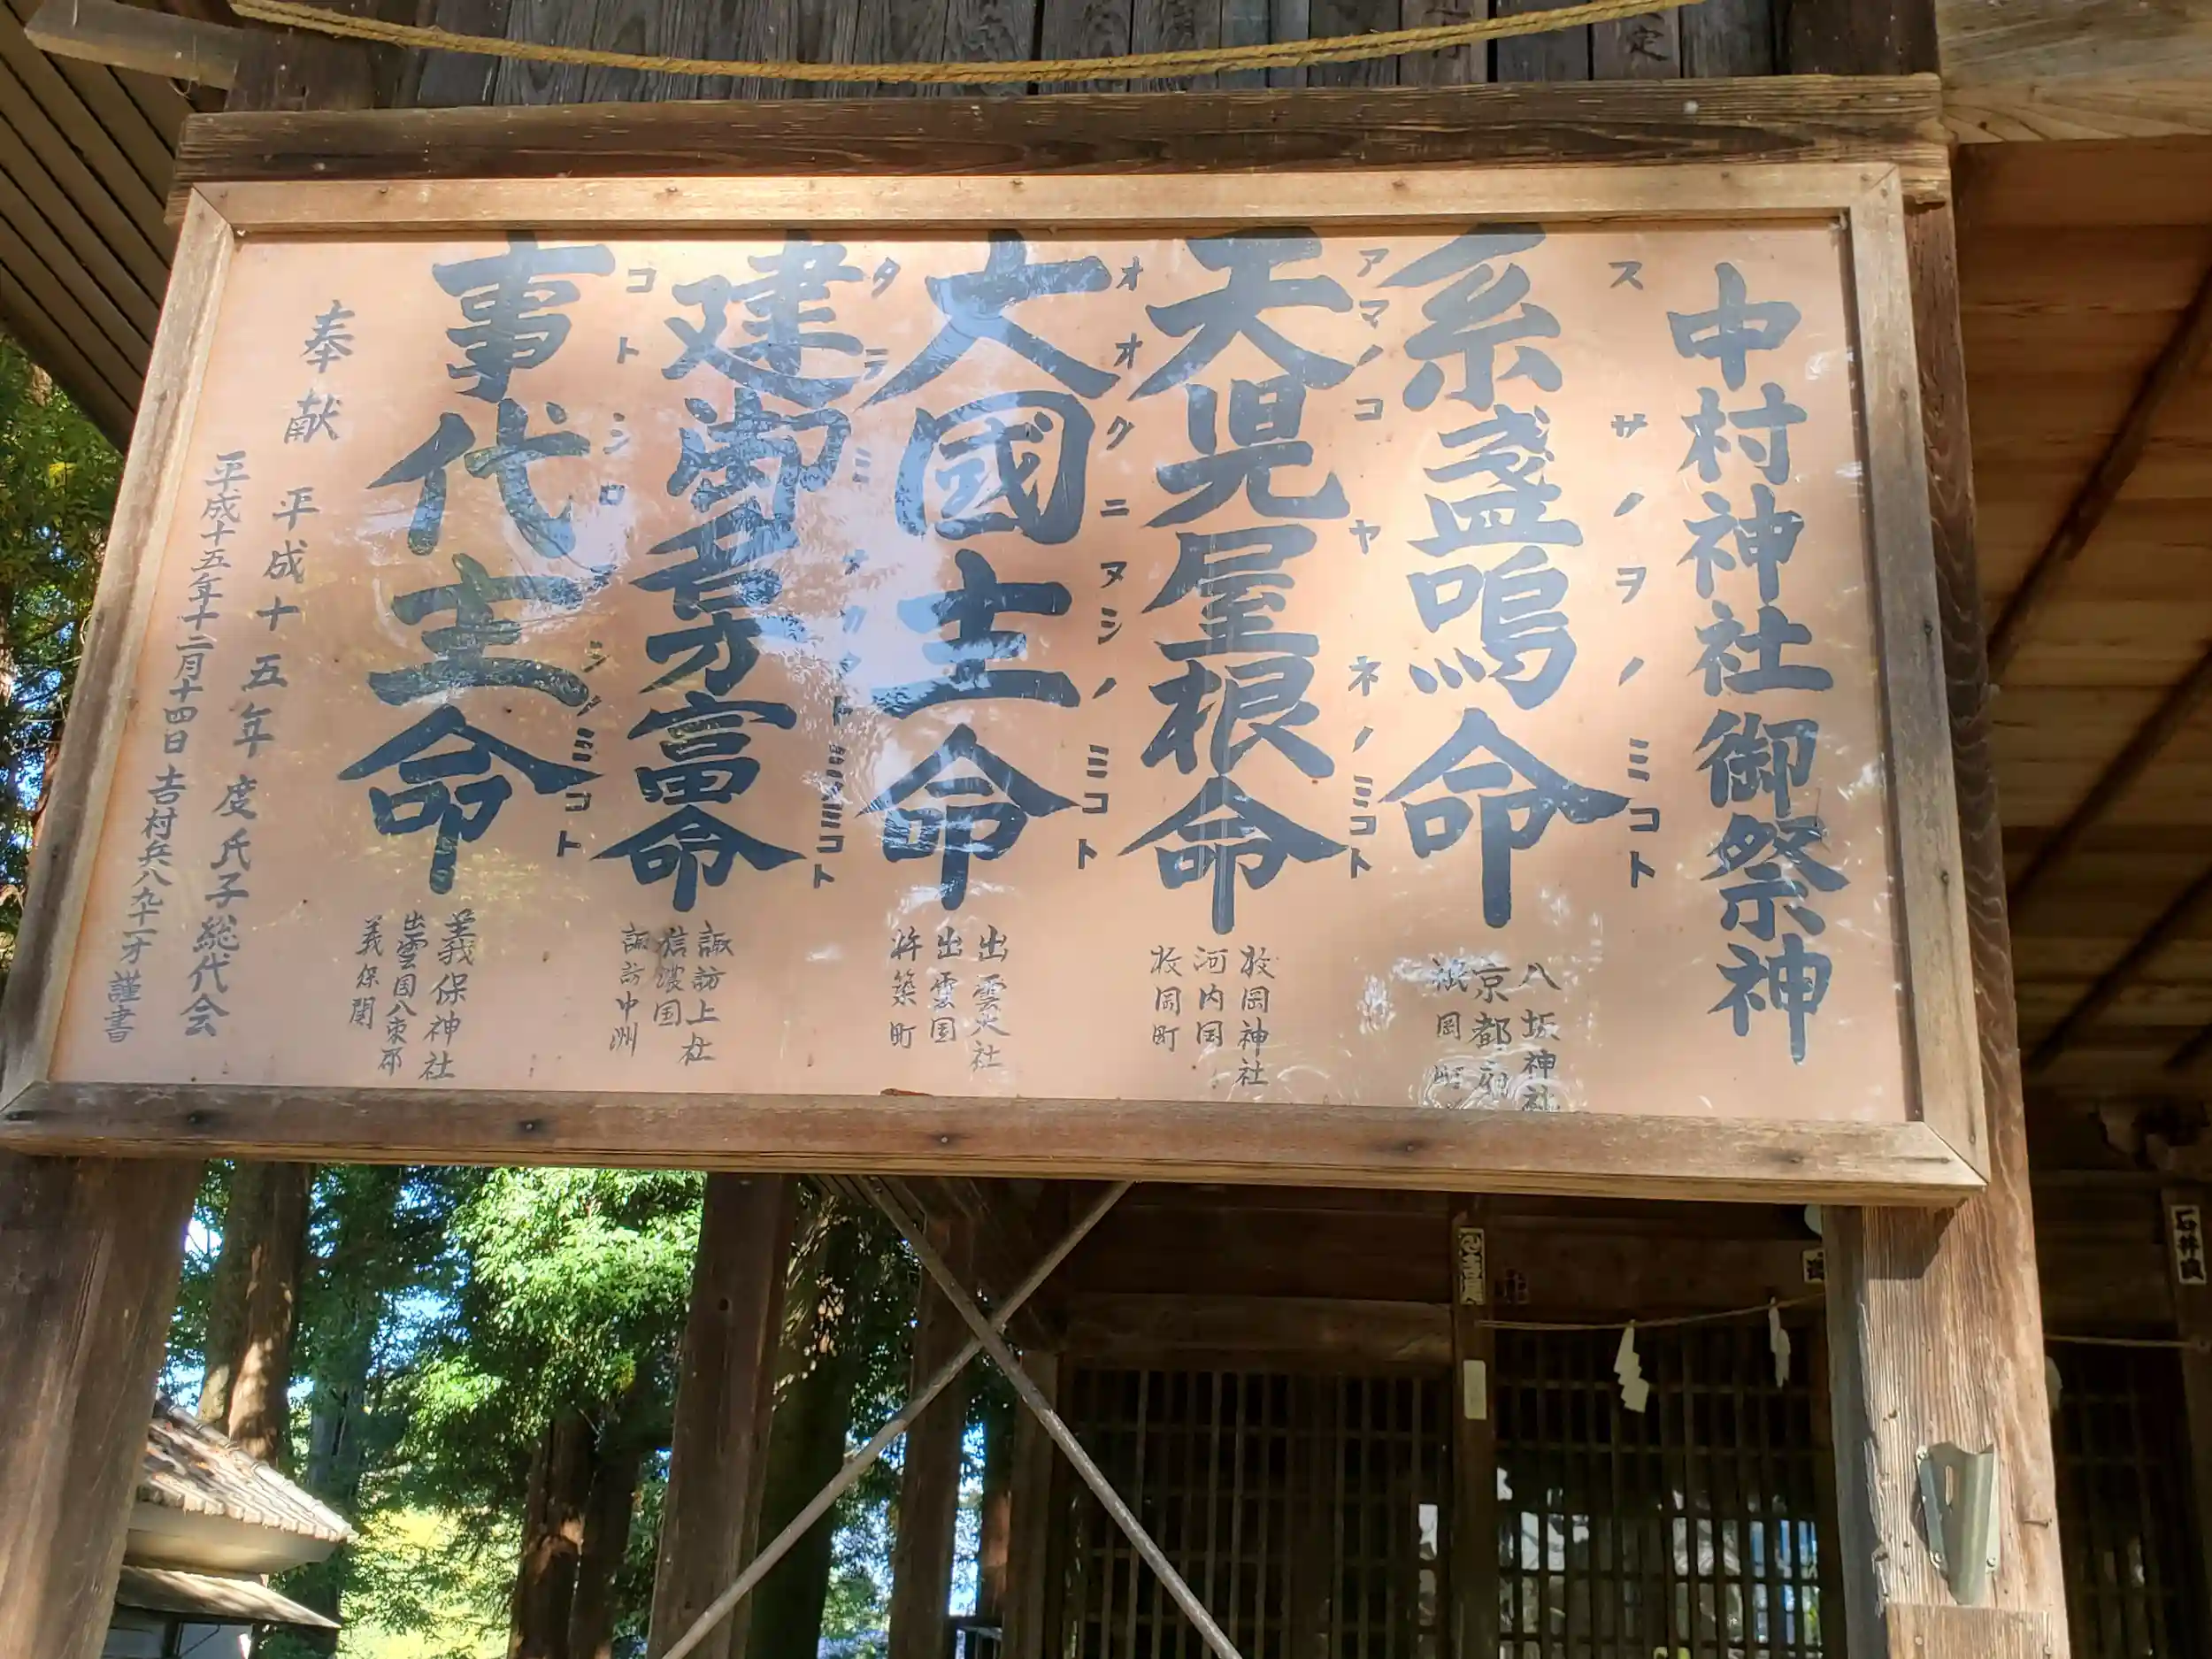 中村神社御祭神
スサノヲノミコト
糸盞鳴命
八坂神社
京都府
祇園町
アマノコヤネノミコト
天児屋根命
枚岡神社
河内国
枚岡町
オオクニヌシノミコト
大國主命
出雲大社
出雲国
杵築町
タテミナカタトミノミコト
建御名方富命
諏訪上社
信濃国
諏訪中洲
コトシロヌシノミコト
事代主命
美保神社
出雲国八束郡
美保関
奉献 平成十五年度氏子総代会
平成十五年十二月十四日 吉村兵八九十一才 謹書